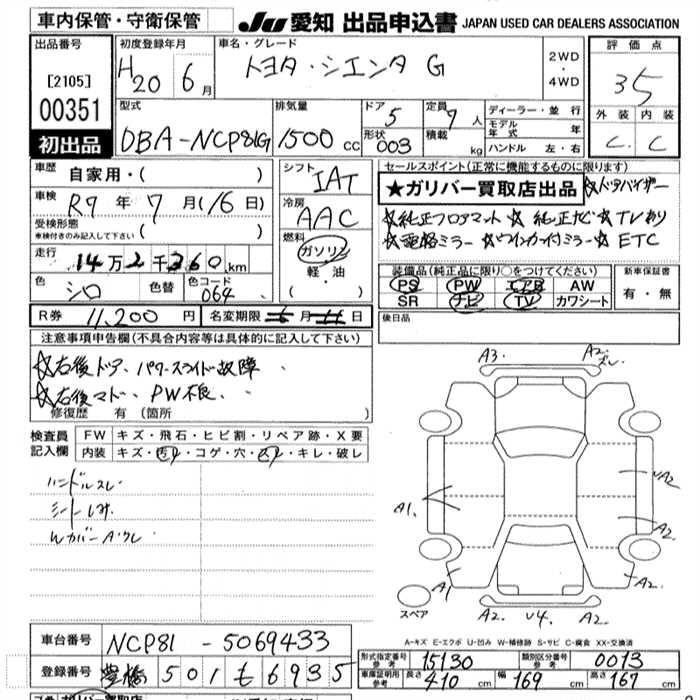 車内保管・守衛保管
JU 愛知 出品申込書 JAPAN USED CAR DEALERS ASSOCIATION
出品番号
[2105]
00351
初出品
初度登録年月
H20 6月
車名・グレード
トヨタ・シエンタ G
2WD
・
4WD
評価点
3.5
外装 内装
C. C
型式
DBA-NCP81G
排気量
1500 cc
ドア 5
形状 003
定員 7人
積載 kg
ディーラー・並行
モデル年式 年
ハンドル 左・右
車歴
自家用・( )
車検
R7年7月(16日)
受検形態
車検付きのみ記入して下さい ( )
走行
14万2千360km
色 シロ 色替 色コード 064
R券 11,200円 名変期限 月 日
シフト
IAT
冷房
AAC
燃料
ガソリン
軽・油
( ・ )
セールスポイント(正常に機能するものに限ります)
★ガリバー買取店出品 ☆ドアバイザー
☆純正フロアマット ☆純正ナビ ☆TVあり
☆電格ミラー ☆ウインカー付ミラー ☆ETC
装備品(純正品に限り○をつけてください)
PS PW エアB AW
SR ナビ TV カワシート
新車保証書
有・無
後日品
注意事項申告欄(不具合内容等は具体的に記入して下さい)
☆右後ドア、パワースライド故障
☆右後マド、PW不良、
修復歴 有 (箇所 )
検査員
記入欄
FW キズ・飛石・ヒビ割・リペア跡・X要
内装 キズ・汚れ・コゲ・穴・スレ・キレ・破れ
ハンドルスレ
シートしみ
Wカバー
A3. A2. スレ
A1. A2
A1 A2.
スペア A2. U4. A2.
A-キズ E-エクボ U-凹み W-補修跡 S-サビ C-腐食 XX-交換済
車台番号 NCP81-5069433
登録番号 豊橋 501 も 6935
形式指定番号 参考 15130 類別区分番号 参考 0013
車庫証明用 参考 長さ 410cm 幅 169cm 高さ 167cm